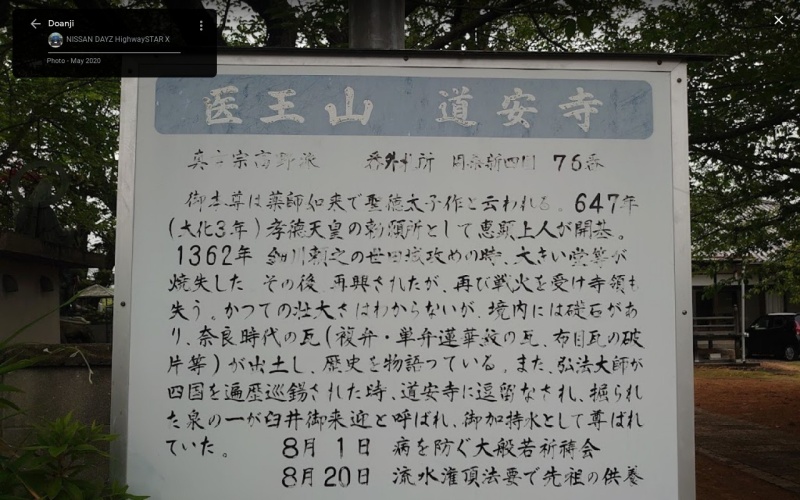 Doanji
NISSAN DAYZ HighwaySTAR X
Photo - May 2020
医王山 道安寺
真言宗高野派 番外札所 周桑新四国 76番
御本尊は薬師如来で聖徳太子作と云われる。647年
(大化3年)孝徳天皇の勅願所として恵顕上人が開基。
1362年 細川頼之の世田城攻めの時、大きい堂等が
焼失した。その後、再興されたが、再び戦火を受け寺領も
失う。かつての壮大さはわからないが、境内には礎石があ
り、奈良時代の瓦(複弁・単弁蓮華紋の瓦、布目瓦の破
片等)が出土し、歴史を物語っている。また、弘法大師が
四国を遍歴巡錫された時、道安寺に逗留なされ、掘られ
た泉の一が臼井御来迎と呼ばれ、御加持水として尊ばれ
ていた。 8月 1日 病を防ぐ大般若祈祷会
8月20日 流水灌頂法要で先祖の供養